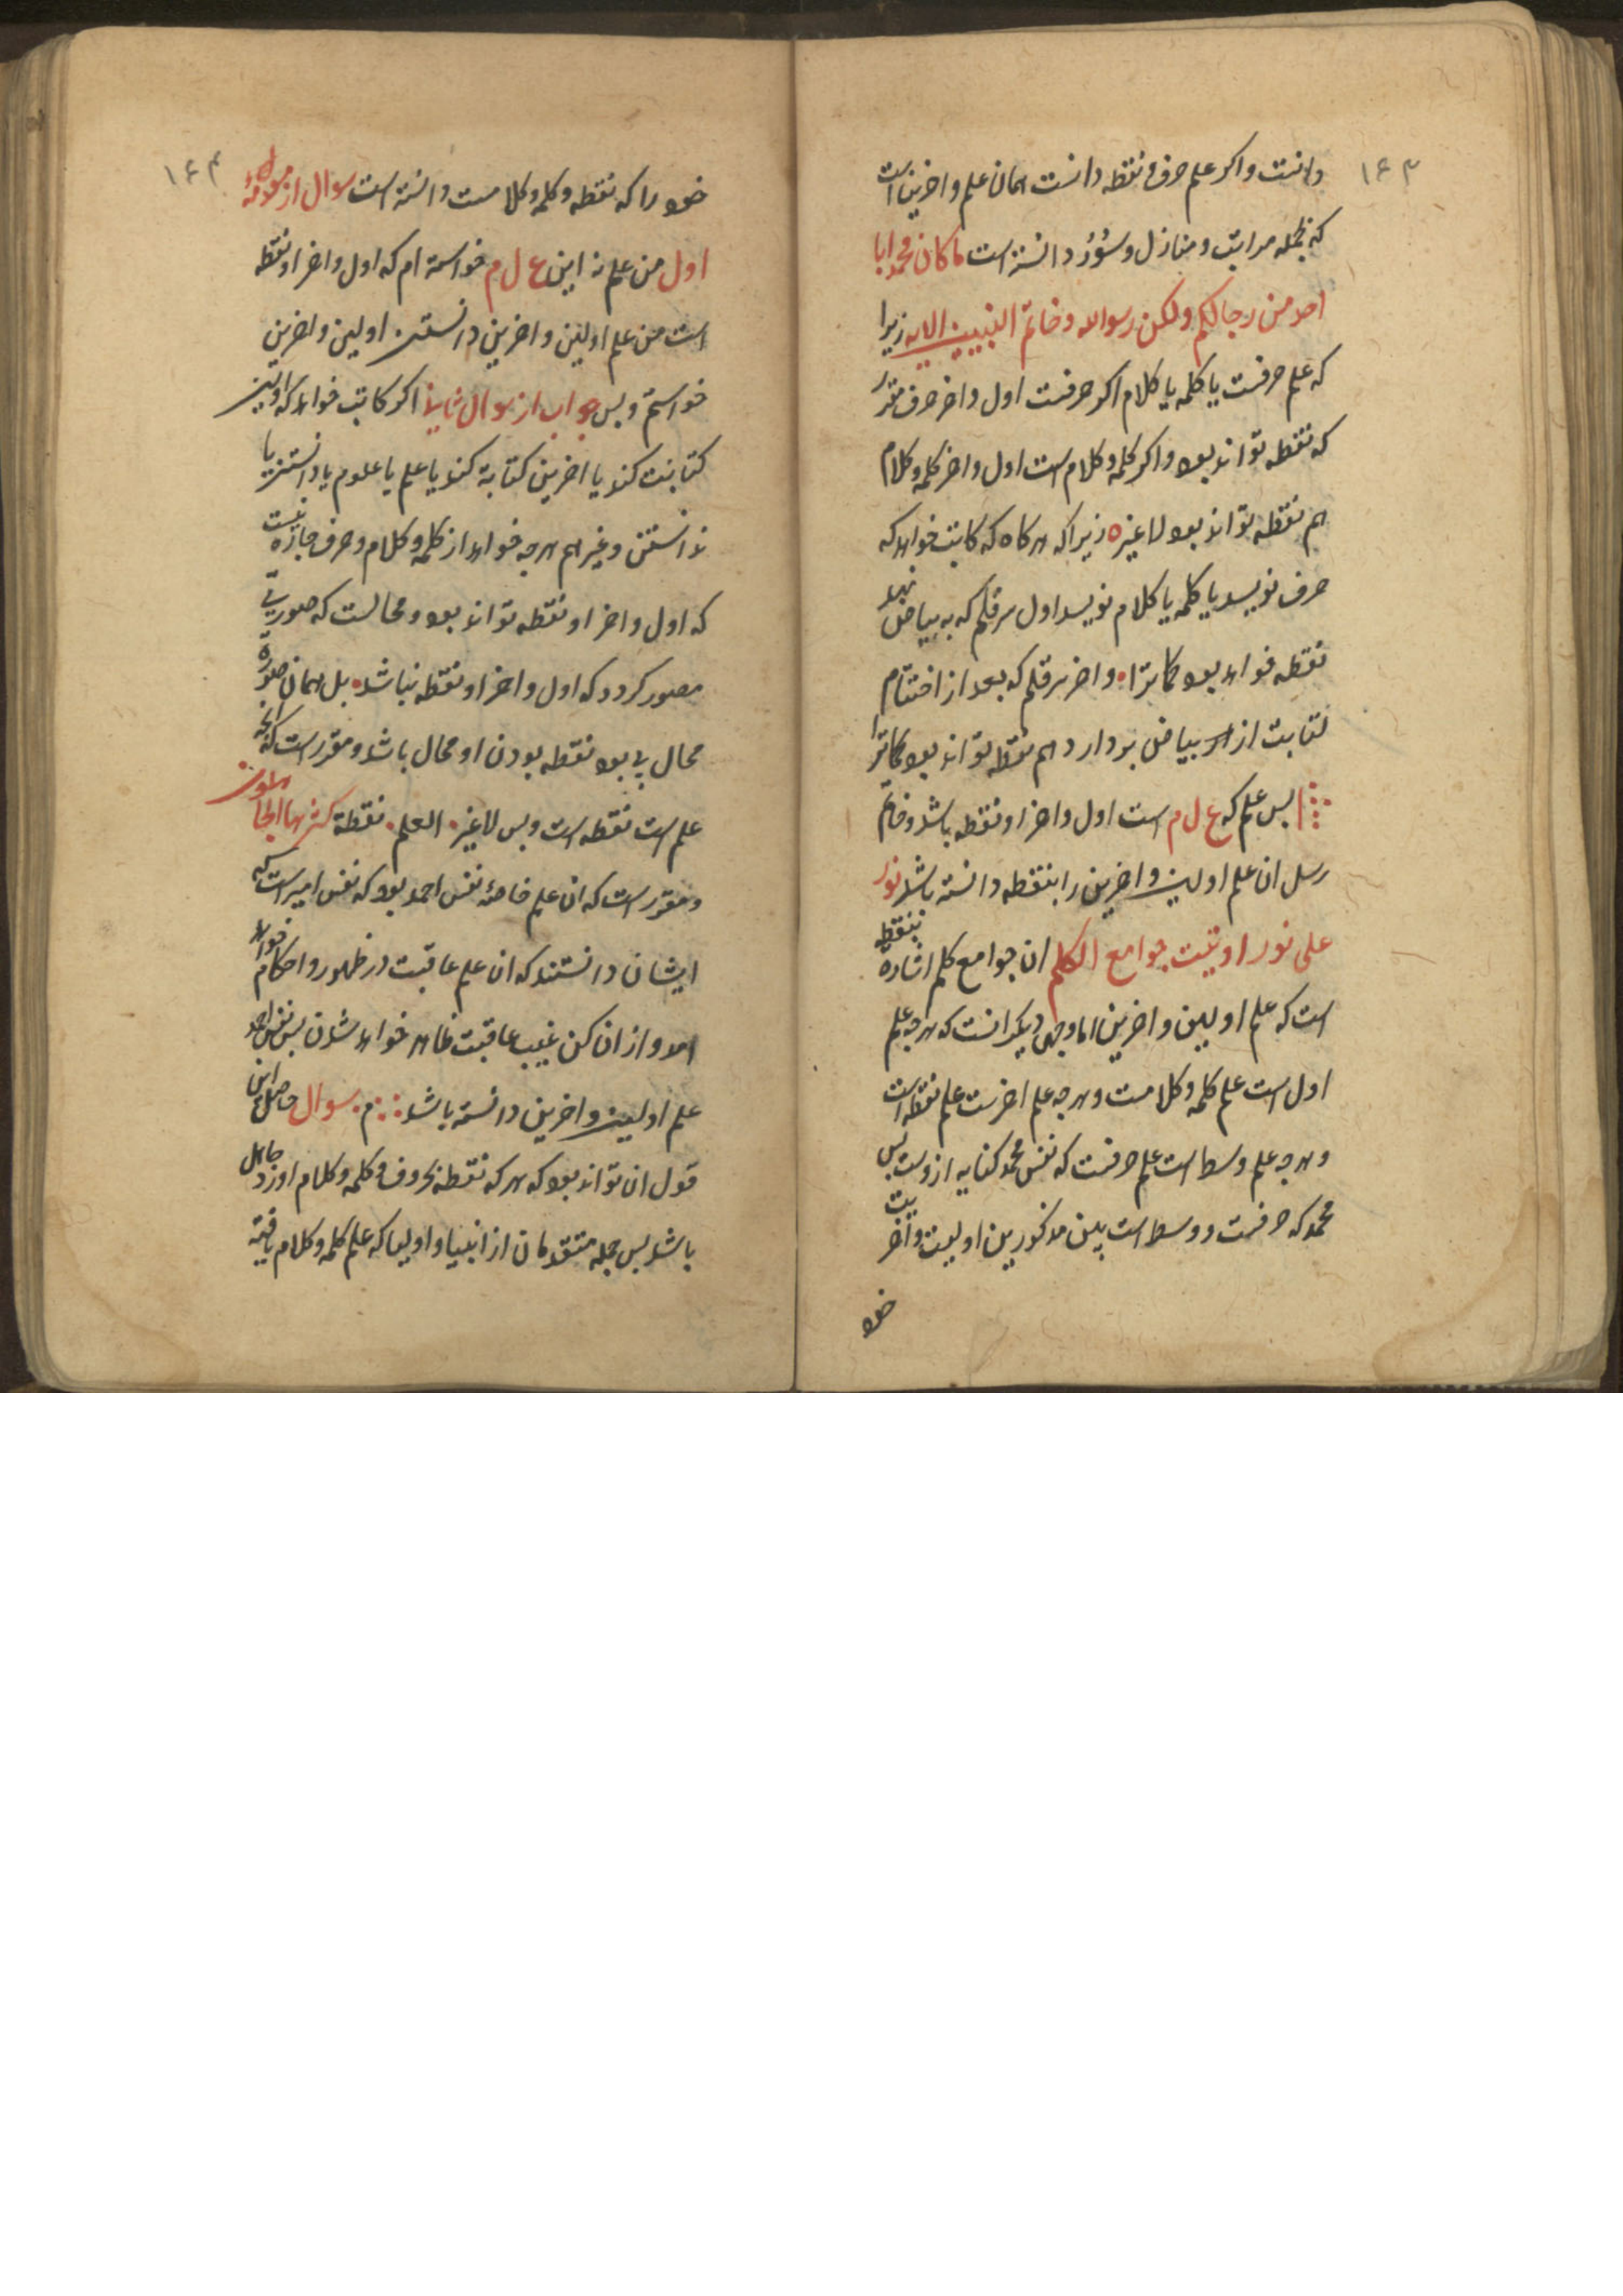 ۱۶۳
دانست واکر علم حرف نقطه دانست همان علم واخرین است
که بجمله مراتب ومنازل وسؤر دانسته است ما کان محمد ابا
احد من رجالکم ولکن رسول الله وخاتم النبیین الایه زیرا
که علم حرفست یا کلمه یا کلام اکر حرفست اول واخر حرف مقرر
که نقطه تواند بود واکر کلمه وکلام است اول واخر کلمه وکلام
هم نقطه تواند بود لاغیر زیرا که هرکاه که کاتب خواهد که
حرف نویسد یا کلمه یا کلام نویسد اول سر قلم که به بیاض نهد
نقطه خواهد بود کاتبرا واخر سر قلم که بعد از اختتام
کتابت از سر بیاض بردارد هم نقطه تواند بود کاتبرا
پس علم که ع ل م است اول واخر او نقطه باشد وخاتم
رسل ان علم اولین واخرین را بنقطه دانسته باشد نور
علی نور اوتیت جوامع الکلم ان جوامع کلم اشاره بنقطه
است که علم اولین واخرین اما وجهی دیکر انست که هرچه علم
اول است علم کلمه وکلامست وهرچه علم اخرست علم نقطه است
وهرچه علم وسط است علم حرفست که نفس محمد کنایه ازوست پس
محمد که حرفست ووسط است بین مذکورین اولیت واخریت
خود
۱۶۴
خود را که نقطه وکلمه وکلامست دانسته است سوال از
اول من علم نه این ع ل م خواسته ام که اول واخر او نقطه
است من علم اولین واخرین دانستن اولین واخرین
خواستم وبس جواب از سوال ثانی اکر کاتب خواهد که اولین
کتابت کند یا اخرین کتابة کند یا علم یا علوم یا دانستن یا
ندانستن وغیرهم هرچه خواهد از کلمه وکلام وحرف چاره نیست
که اول واخر او نقطه تواند بود ومحالست که صورتی
مصور کردد که اول واخر او نقطه نباشد بل همان صورة
محال بود نقطه بودن او محال باشد ومقرر است که انچه
علم است نقطه است وبس لاغیر العلم نقطة کثرها الجاهلون
ومقرر است که ان علم خاصهٔ نفس احمد بود که نفس امیر است که
ایشان دانستند که ان علم عاقبت در ظهور واحکام خواهد
امد واز ان کن غیب عاقبت ظاهر خواهد شدن پس نفس احمد
علم اولین واخرین دانسته باشد م سوال حاصل این
قول ان تواند بود که هرکه نقطه بحروف وکلمه وکلام اورد جاهل
باشد پس جمله متقدمان از انبیا واولیا که علم کلمه وکلام یافته